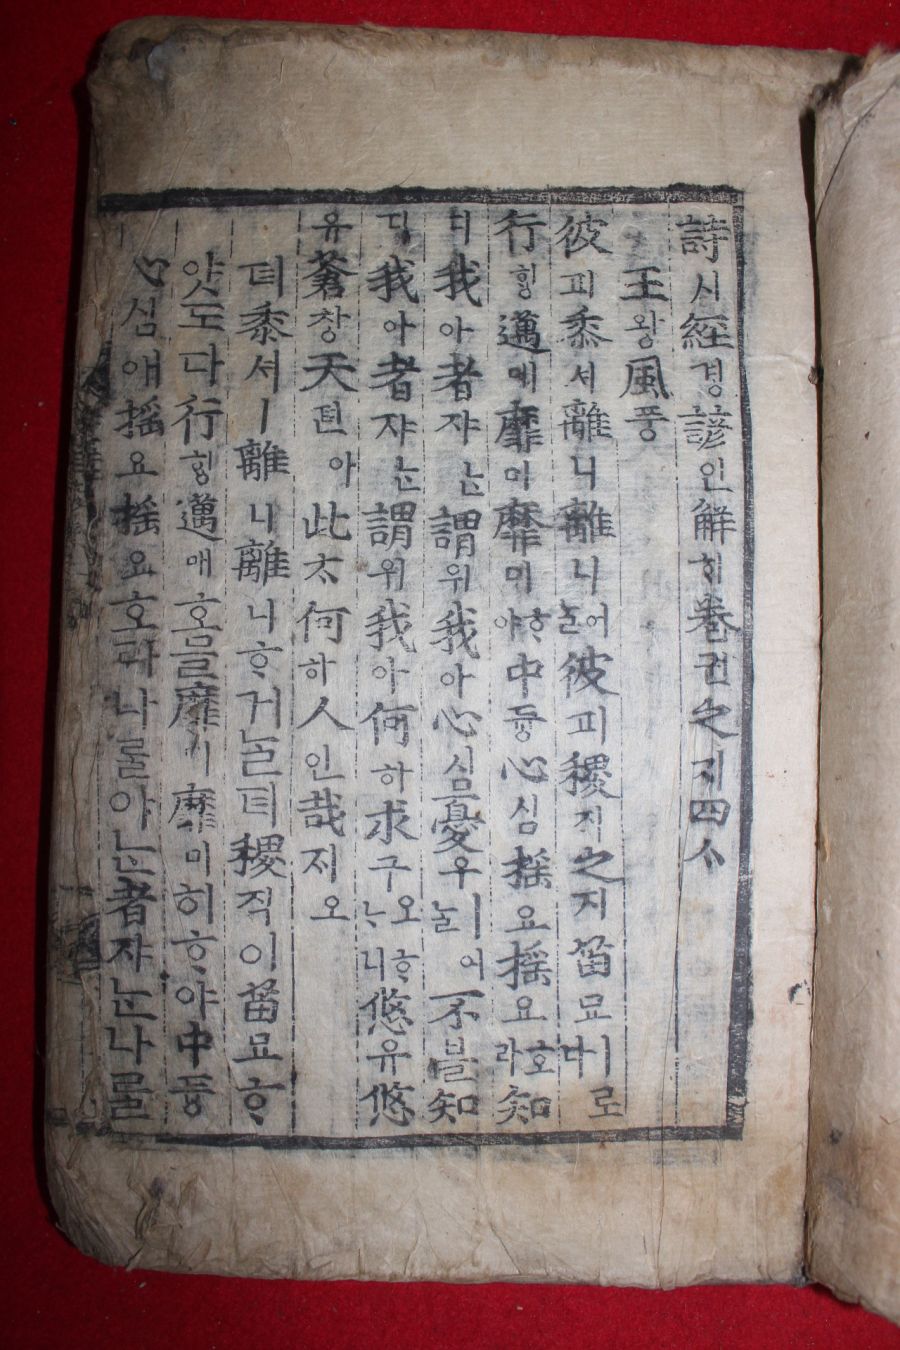 詩시經경諺언解ᄒᆡ卷권之지四ᄉᆞ
王왕風풍
彼피黍셔離니離니어ᄂᆞᆯ彼피稷직之지苗묘ㅣ로다
行ᄒᆡᆼ邁매靡미靡미ᄒᆞ야中듕心심搖요搖요호라知
디我아者쟈ᄂᆞᆫ謂위我아心심憂우ㅣ어ᄂᆞᆯ不블知
디我아者쟈ᄂᆞᆫ謂위我아何하求구오ᄒᆞᄂᆞ니悠유悠
유蒼창天텬아此ᄎᆞ何하人인哉ᄌᆡ오
뎌黍셔ㅣ離니離니ᄒᆞ거ᄂᆞᆯ뎌稷직이苗묘ᄒᆞ
얏도다行ᄒᆡᆼ邁매호믈靡미靡미히ᄒᆞ야中듕
心심애搖요搖요호라나ᄅᆞᆯ아ᄂᆞᆫ者쟈ᄂᆞᆫ나ᄅᆞᆯ